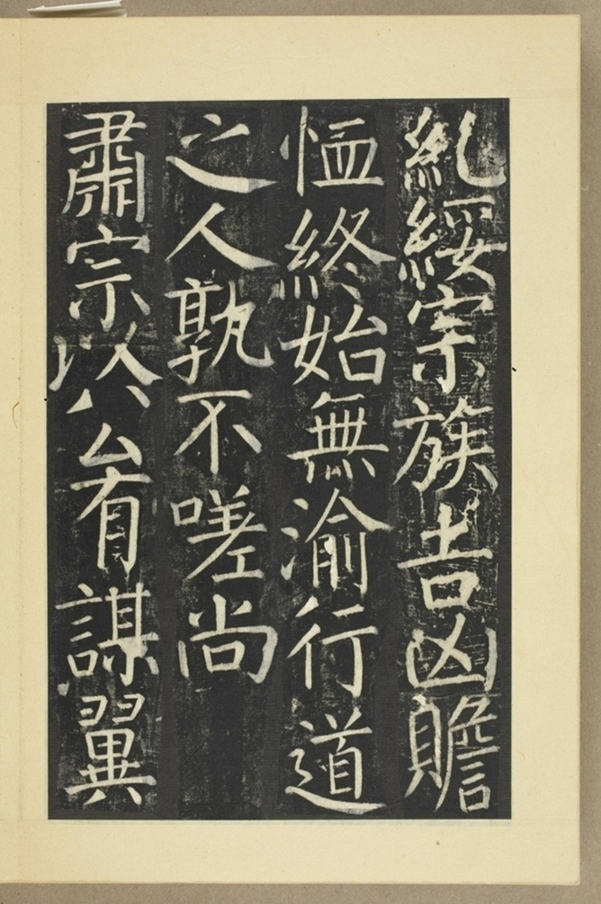 糺綏宗族吉凶贍
恤終始無渝行道
之人孰不嗟尚
肅宗以公有謀翼